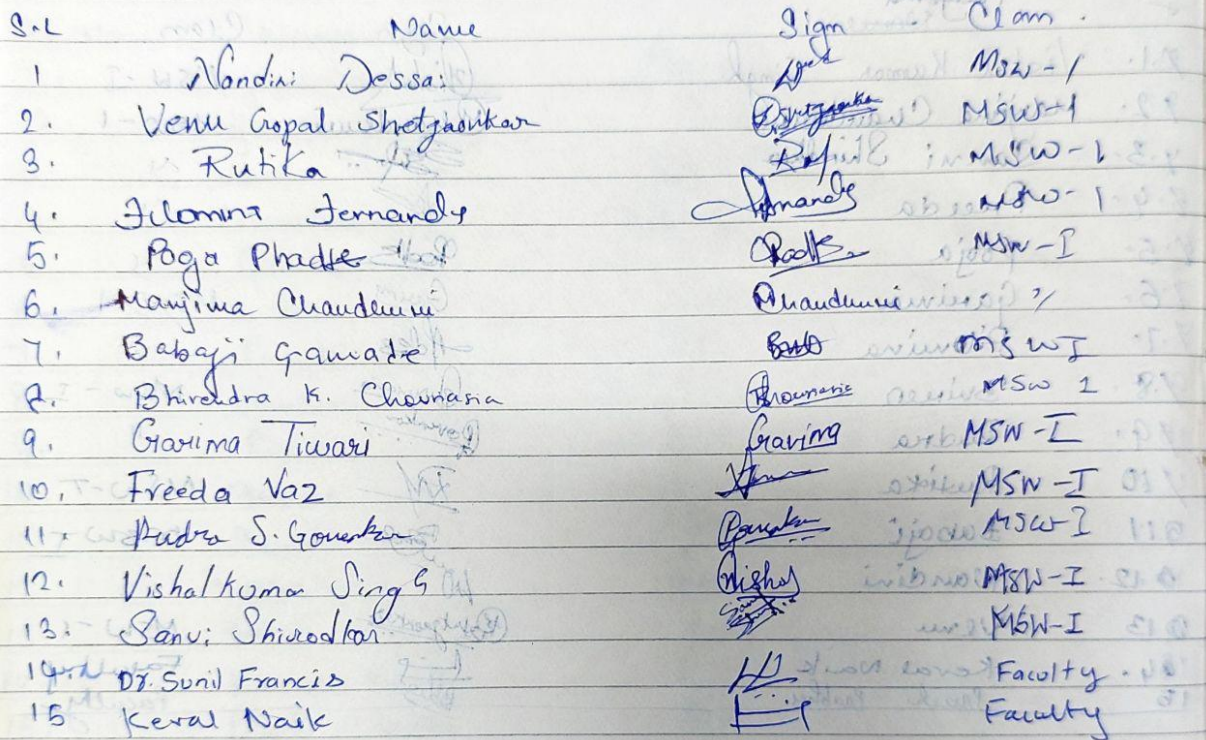 S.L Name Sign Class.
1 Nandini Dessai MSW-1
2. Venu Gopal Shetgaonkar Shetgaonkar MSW-1
3. Rutika MSW-1
4. Filomina Fernandes Fernandes MSW-1
5. Pooja Phadte MSW-I
6. Manjima Chaudhuri Mchaudhuri "/
7. Babaji Gawade MSW I
8. Bhirendra K. Chourasia Chourasia MSW 1
9. Garima Tiwari Garima MSW-I
10. Freeda Vaz MSW-I
11. Rudra S. Gouenkar MSW-I
12. Vishal Kumar Singh Vishal MSW-I
13. Sanvi Shirodkar MSW-I
14. Dr. Sunil Francis Faculty.
15 Keval Naik Faculty